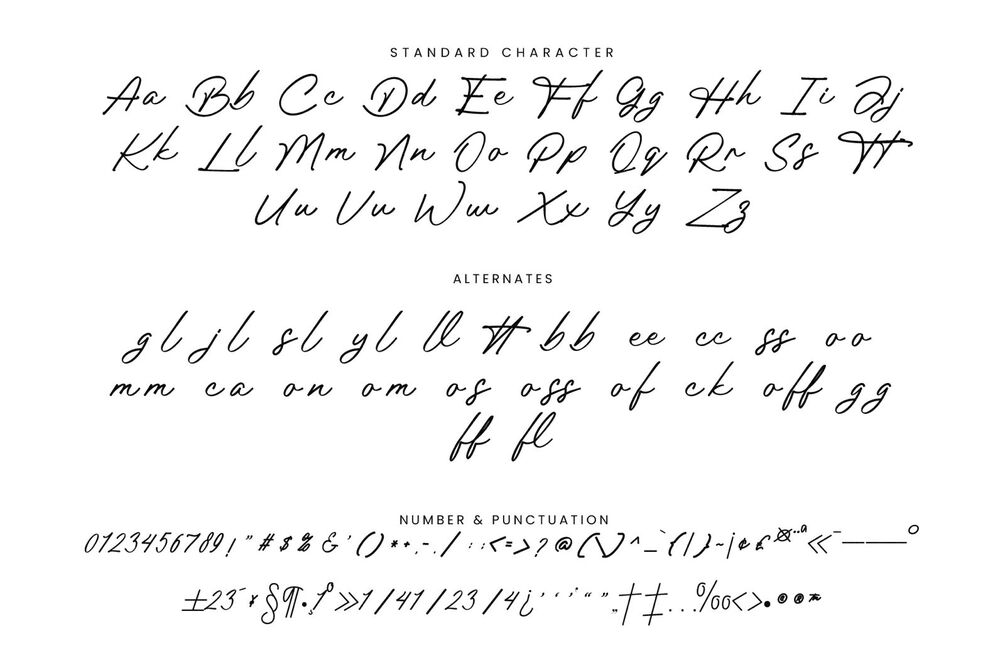 STANDARD CHARACTER
Aa Bb Cc Dd Ee Ff Gg Hh Ii Jj
Kk Ll Mm Nn Oo Pp Qq Rr Ss Tt
Uu Vv Ww Xx Yy Zz
ALTERNATES
gl jl sl yl ll tt bb ee cc ss oo
mm ca on om os oss of ck off gg
ff fl
NUMBER & PUNCTUATION
0123456789!"#$%&'()*+,-./:;<=>?@[\]^_`{|}~¡¢£¤¨ª«¯——º
±23´*§¶•¸1º»1/41/23/4¿'‘’“”„†‡...‰‹›•®©™